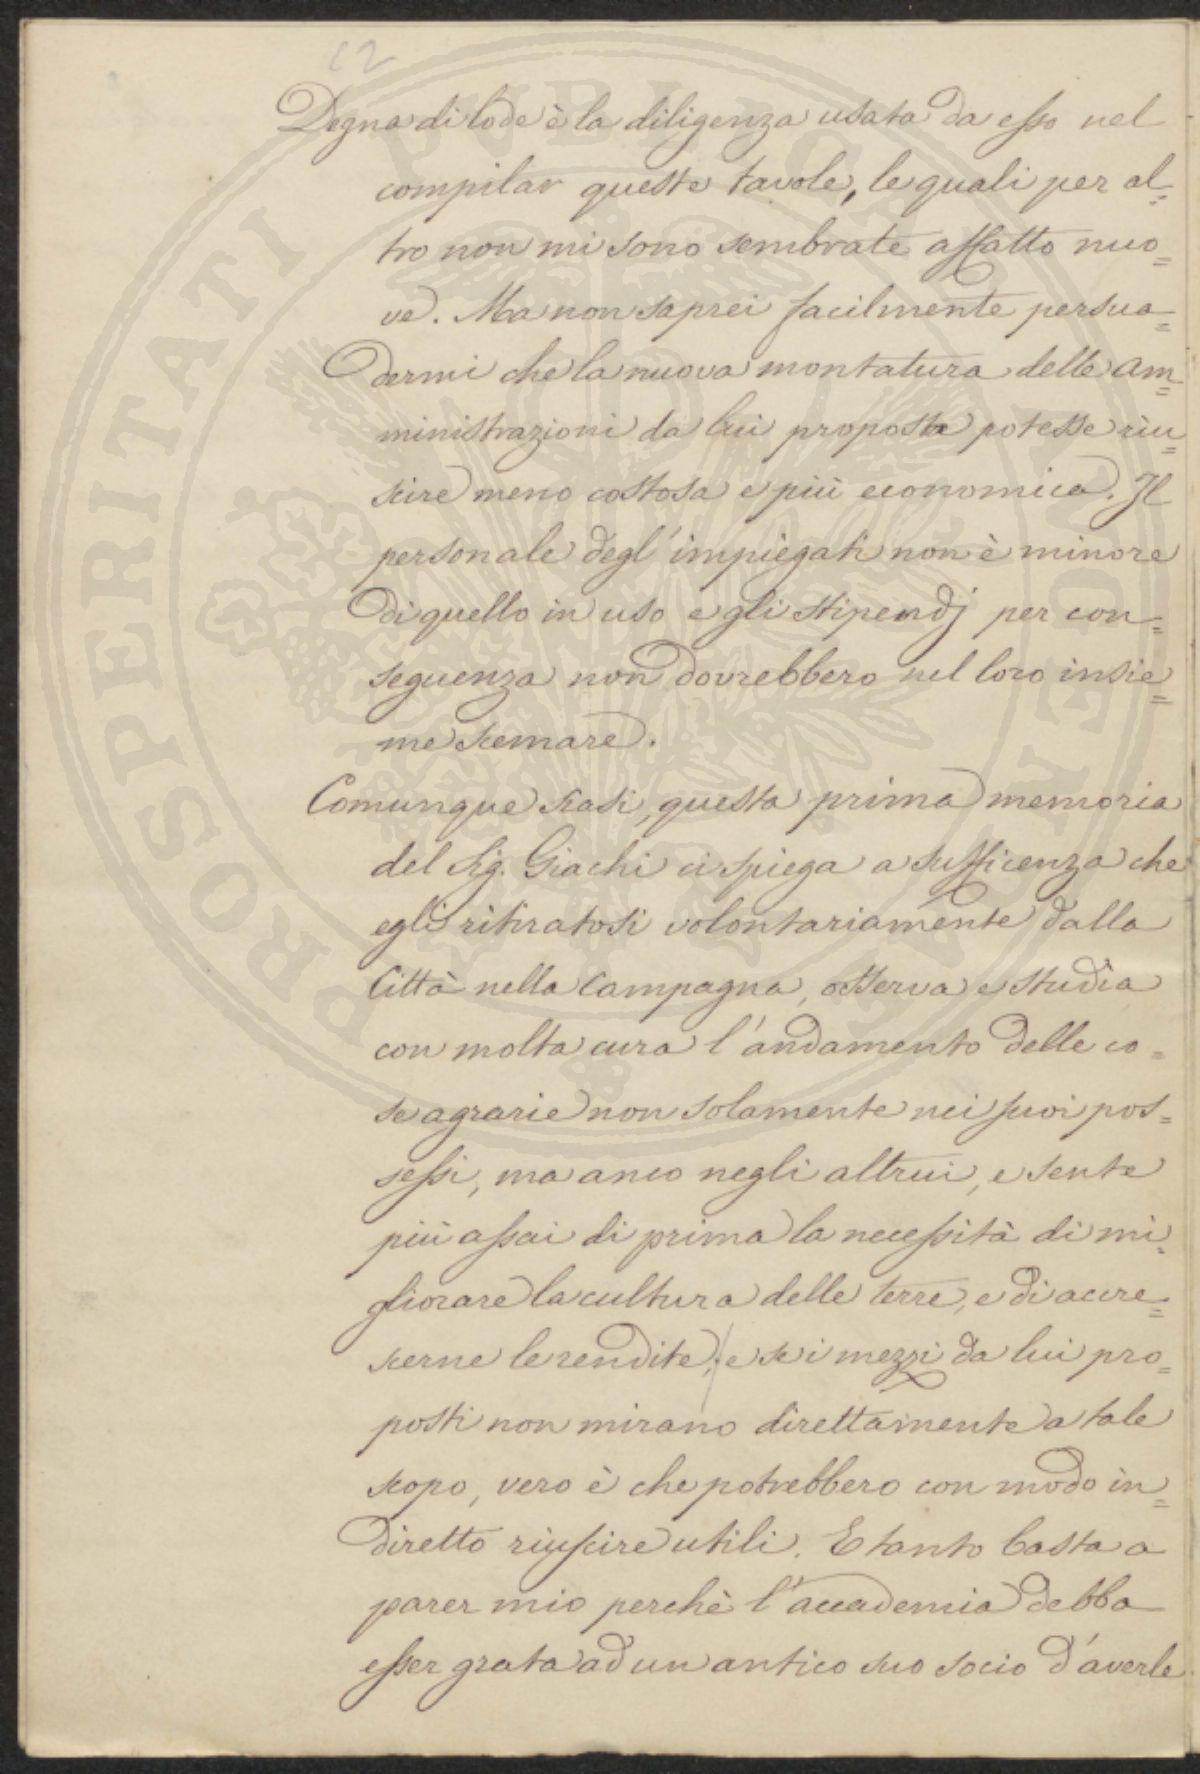 12
Degna di lode è la diligenza usata da esso nel
compilar queste tavole, le quali per al=
tro non mi sono sembrate affatto nuo=
ve. Ma non saprei facilmente persua=
dermi che la nuova montatura delle am=
ministrazioni da lui proposta potesse riu=
scire meno costosa e più economica. Il
personale degl'impiegati non è minore
di quello in uso e gli stipendj per con=
seguenza non dovrebbero nel loro insie=
me scemare.
Comunque siasi, questa prima memoria
del Sig. Giachi ci spiega a sufficenza che
egli ritiratosi volontariamente dalla
Città nella Campagna, osserva e studia
con molta cura l'andamento delle co=
se agrarie non solamente nei suoi pos=
sessi, ma anco negli altrui, e sente
più assai di prima la necessità di mi=
gliorare la cultura delle terre, e di accre=
scerne le rendite; e se i mezzi da lui pro=
posti non mirano direttamente a tale
scopo, vero è che potrebbero con modo in=
diretto riuscire utili. E tanto basta a
parer mio perchè l'accademia debba
esser grata ad un antico suo socio d'averle
PROSPERITATI PVBLICAE AVGENDAE